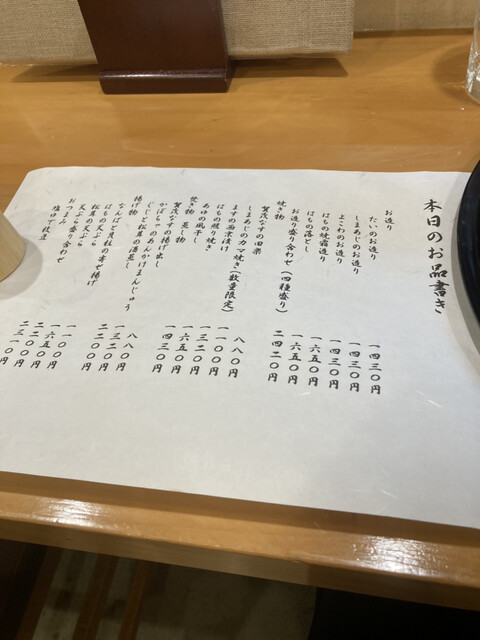 本日のお品書き
お造り
たいのお造り 一四三〇円
しまあじのお造り 一四三〇円
よこわのお造り 一四三〇円
はもの焼霜造り 一六五〇円
はもの落とし 一六五〇円
お造り盛り合わせ(四種盛り) 二四二〇円
焼き物
賀茂なすの田楽 八八〇円
しまあじのカマ焼き(数量限定) 一一〇〇円
ますの西京漬け 一三二〇円
はもの照り焼き 一六五〇円
あゆの風干し 一四三〇円
焚き物 蒸し物
賀茂なすの揚げ出し 八八〇円
かぼちゃのあんかけまんじゅう 一三二〇円
ぐじと松茸の酒蒸し 二二〇〇円
揚げ物
なんばと枝豆の寄せ揚げ 一一〇〇円
はもの天ぷら 一六五〇円
松茸の天ぷら 二二〇〇円
天ぷら盛り合わせ 二三一〇円
おつまみ
塩ゆで枝豆